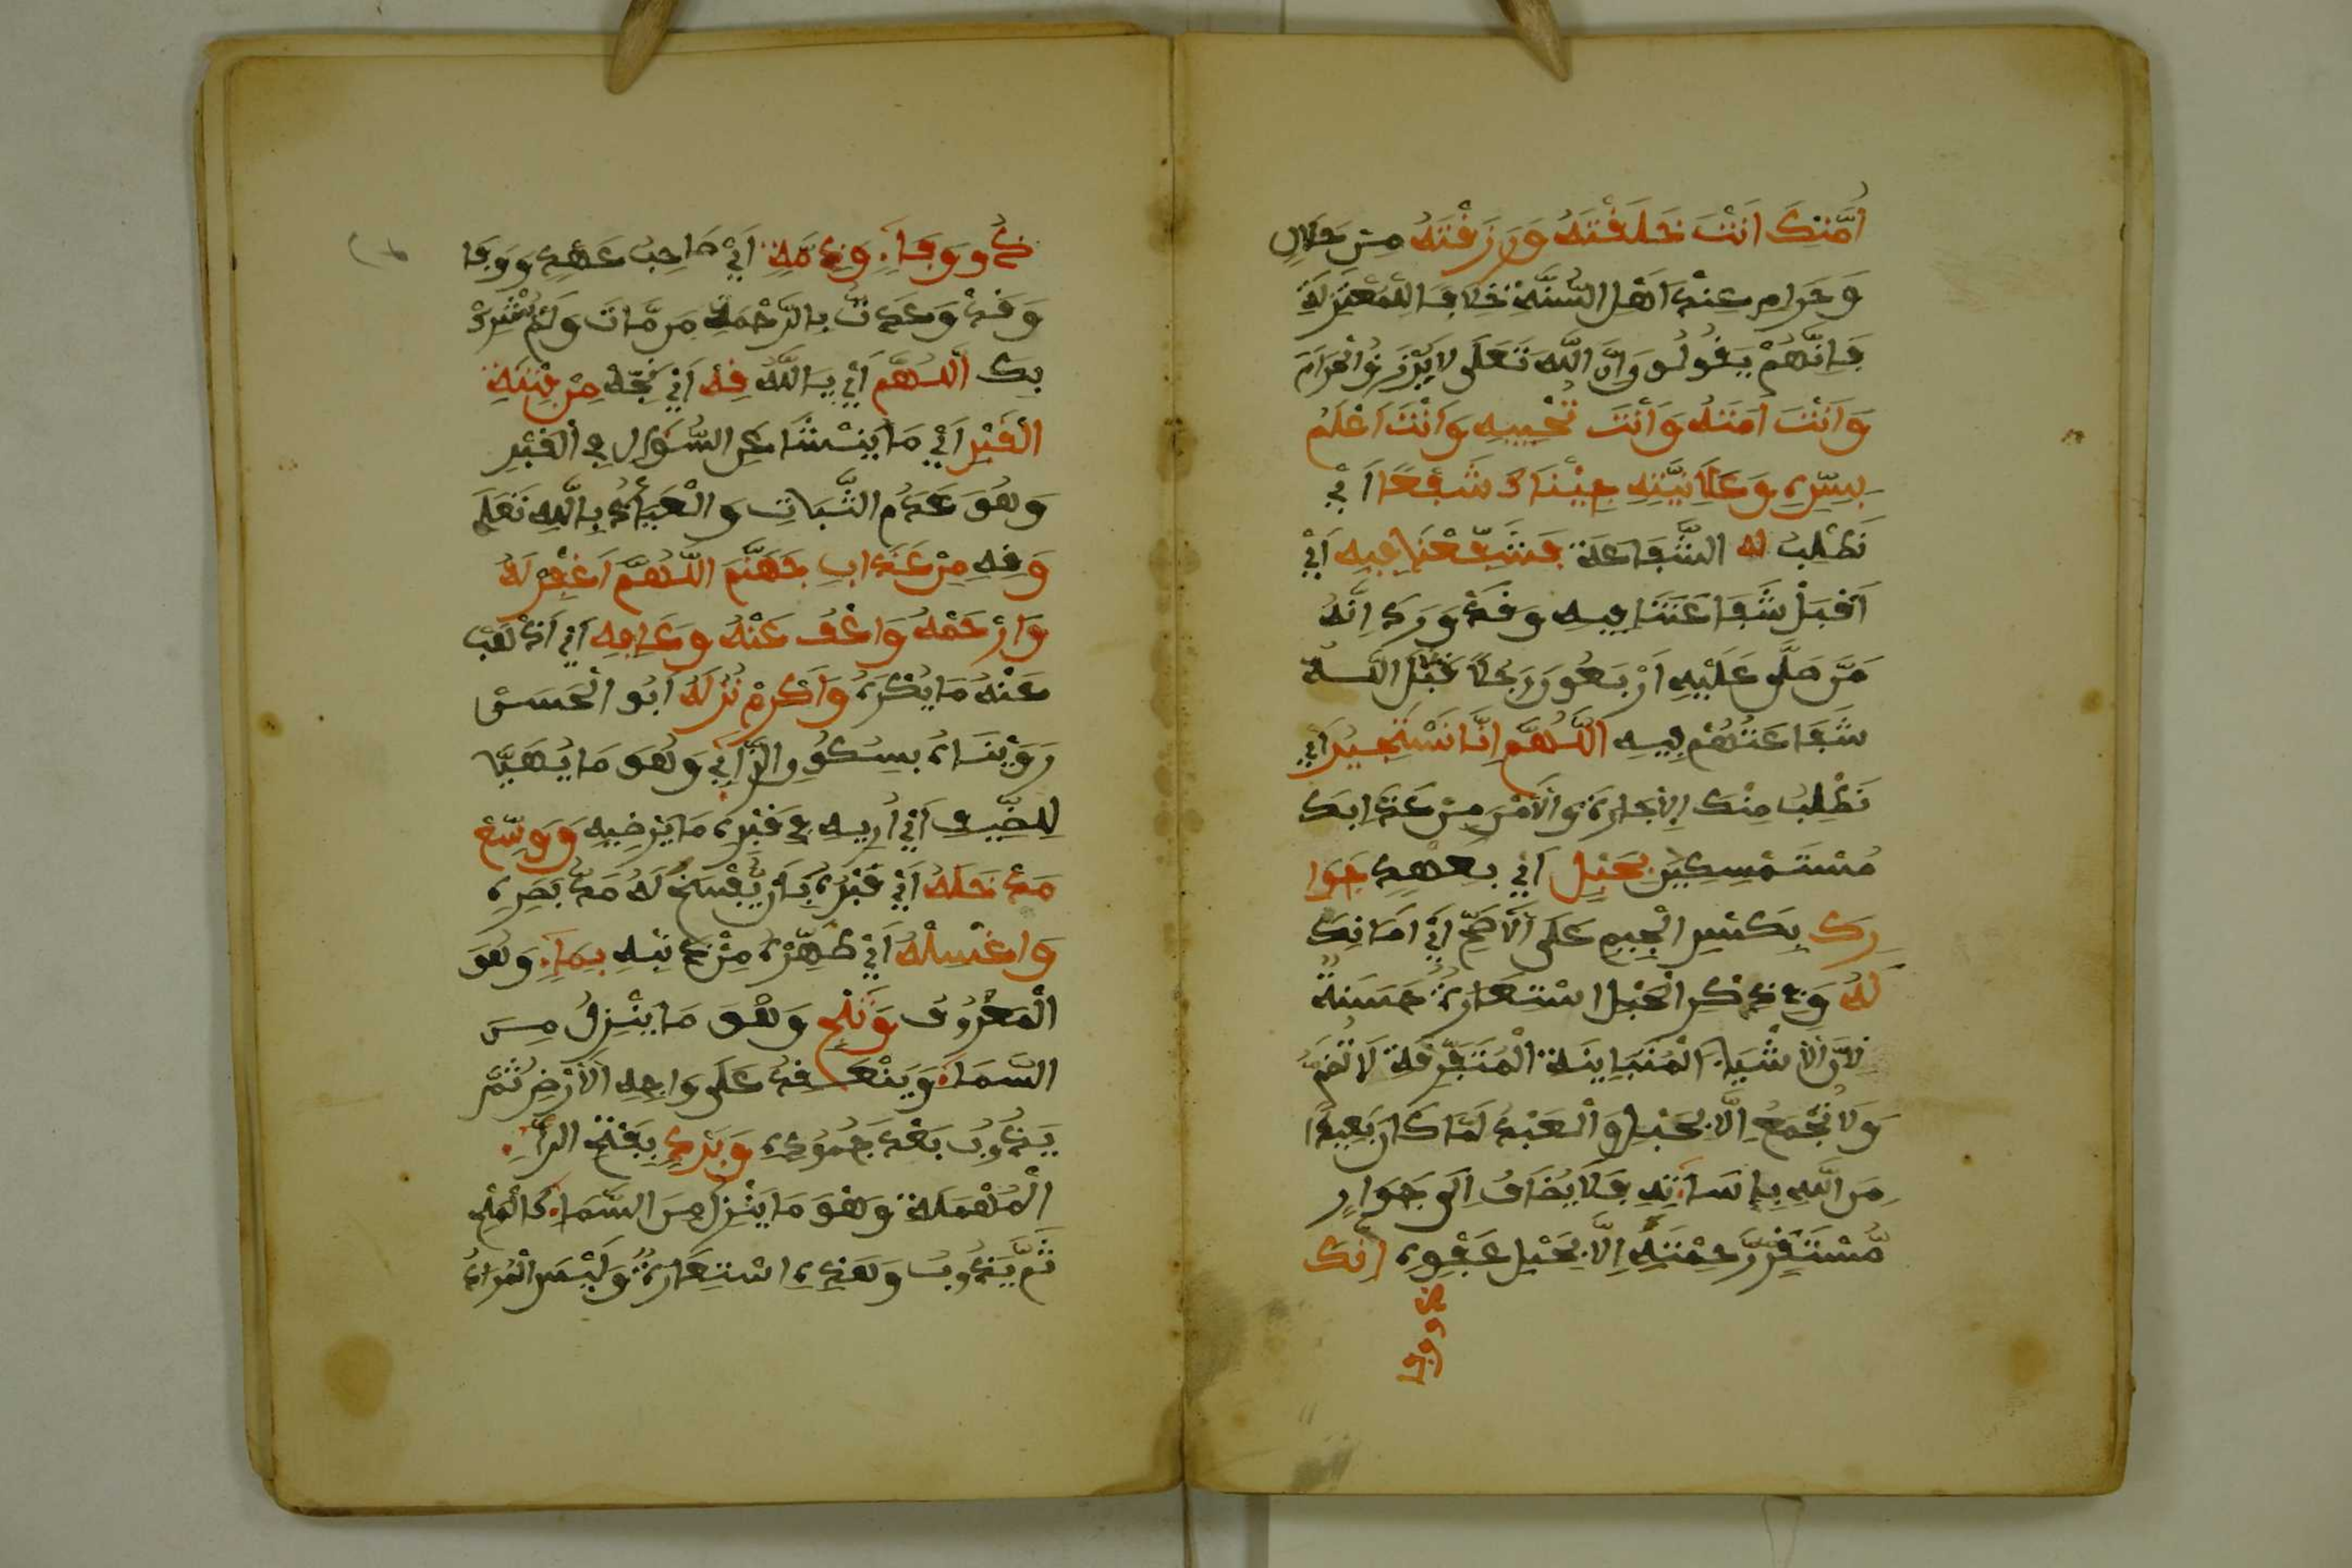 أُمَّتِكَ أَنْتَ خَلَقْتَهُ وَرَزَقْتَهُ مِنْ حَلَالٍ
وَحَرَامٍ عِنْدَ أَهْلِ السُّنَّةِ خِلَافًا لِلْمُعْتَزِلَةِ
فَإِنَّهُمْ يَقُولُونَ إِنَّ اللَّهَ تَعَلَى لَا يَرْزُقُ الْحَرَامَ
وَأَنْتَ أَمَتَّهُ وَأَنْتَ تُحْيِيهِ وَأَنْتَ أَعْلَمُ
بِسِرِّهِ وَعَلَانِيَّتِهِ جِئْنَاكَ شُفَعَاءَ أَيْ
نَطْلُبُ لَهُ الشَّفَاعَةَ فَشَفِّعْنَا فِيهِ أَيْ
اَقْبَلْ شَفَاعَتَنَا فِيهِ وَقَدْ وَرَدَ اِنَّهُ
مَنْ صَلَّى عَلَيْهِ اَرْبَعُونَ رَجُلًا قَبِلَ اللَّهُ
شَفَاعَتَهُمْ فِيهِ اَللَّهُمَّ اِنَّا نَسْتَجِيرُ اَيْ
نَطْلُبُ مِنْكَ الْإِجَارَةَ وَالْأَمْنَ مِنْ عَذَابِكَ
مُسْتَمْسِكِينَ بِحَبْلِ اَيْ بِعَهْدِ جِوَا
رِكَ بِكَسْرِ الْجِيمِ عَلَى الْأَصَحِّ اَيْ اَمَانِكَ
لَهُ وَفِي ذِكْرِ الْحَبْلِ اسْتِعَارَةٌ حَسَنَةٌ
لِأَنَّ الْأَشْيَاءَ الْمُتَبَايِنَةَ الْمُتَفَرِّقَةَ لَا تُضَمُّ
وَلَا تُجْمَعُ اِلَّا بِحَبْلٍ وَالْعَبْدُ لَمَّا كَانَ بَعِيدًا
مِنَ اللَّهِ بِإِسَاءَتِهِ فَلَا يُضَافُ اِلَى جِوَارِ
مُسْتَقَرِّ رَحْمَتِهِ اِلَّا بِحَبْلِ عَفْوِهِ إِنَّكَ
ذو وفا
ذُو وَفَاءٍ وَذِمَّةٍ اَيْ صَاحِبُ عَهْدٍ وَوَفَا
وَقَدْ وَعَدْتَ بِالرَّحْمَةِ مَنْ مَّاتَ وَلَمْ يُشْرِكْ
بِكَ اَللَّهُمَّ اَيْ يَا اللَّهُ قِهِ اَيْ نَجِّهِ مِنْ فِتْنَةِ
الْقَبْرِ اَيْ مَا يَنْشَأُ عَنِ السُّؤَالِ فِي الْقَبْرِ
وَهُوَ عَدَمُ الثَّبَاتِ وَالْعِيَاذُ بِاللَّهِ تَعَلَى
وَقِهِ مِنْ عَذَابِ جَهَنَّمَ اللَّهُمَّ اغْفِرْ لَهُ
وَارْحَمْهُ وَاعْفُ عَنْهُ وَعَافِهِ اَيْ اَذْهِبْ
عَنْهُ مَا يُكْرَهُ وَاَكْرِمْ نُزُلَهُ اَبُو الْحَسَنِ
رَوَيْنَاهُ بِسُكُونِ الزَّايِ وَهُوَ مَا يُهَيَّأُ
لِلضَّيْفِ اَيْ اَرِيهِ فِي قَبْرِهِ مَا يُرْضِيهِ وَوَسِّعْ
مَدْخَلَهُ اَيْ قَبْرَهُ بِأَنْ يُّفْسَحَ لَهُ مَدَّ بَصَرِهِ
وَاغْسِلْهُ اَيْ طَهِّرْهُ مِنْ ذَنْبِهِ بِمَاءٍ وَهُوَ
الْمَعْرُوفُ وَثَلْجٍ وَهُوَ مَا يَنْزِلُ مِنَ
السَّمَاءِ وَيَنْعَقِدُ عَلَى وَجْهِ الْأَرْضِ ثُمَّ
يَذُوبُ بَعْدَ جُمُودِهِ وَبَرَدٍ بِفَتْحِ الرَّاءِ
الْمُهْمَلَةِ وَهُوَ مَا يَنْزِلُ مِنَ السَّمَاءِ كَالْمِلْحِ
ثُمَّ يَذُوبُ وَهَذِهِ اسْتِعَارَةٌ وَلَيْسَ الْمُرَادُ